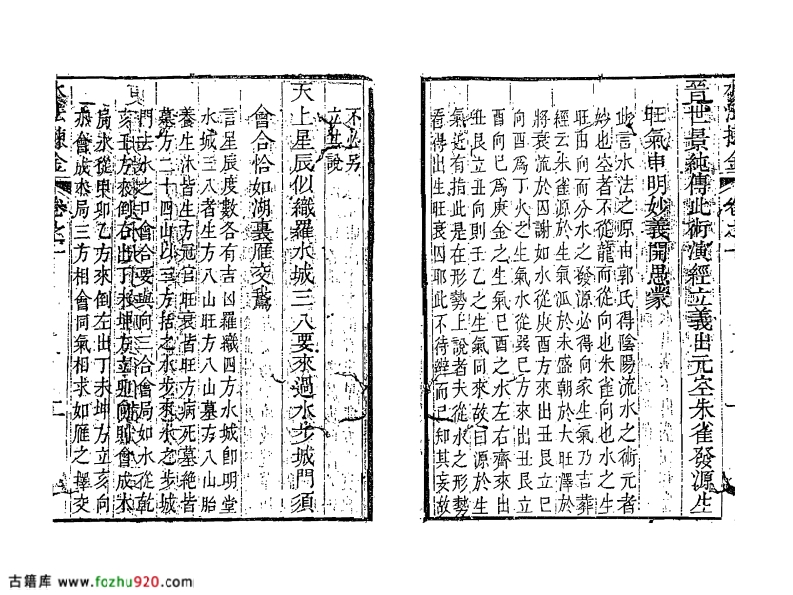 晉世景純傳此術演經立義出元空朱雀發源生
旺氣申明妙義開愚蒙
此言水法之原由郭氏得陰陽流水之術元者
妙也空者不從龍而從向也朱雀向也水之生
旺由向而分水之發源必得向家生氣乃吉葬
經云朱雀源於生氣派於未盛朝於大旺澤於
將衰流於囚謝如水從庚酉方來出丑艮立巳
向酉爲丁火之生氣水從巽巳方來出丑艮立
酉向巳爲庚金之生氣巳酉之水左右齊來出
丑艮立丑向則壬乙之生氣同來故曰源於生
氣近有指此是在形勢上說者夫從水之形勢
看得出生旺衰囚耶此不待辨而已知其妄故
不必另
立其說
天上星辰似織羅水城三八要來過水步城門須
會合恰如湖裏雁交鵞
言星辰度數各有吉凶羅織四方水城卽明堂
水城三八者生方八山旺方八山墓方八山胎
養生沐皆生方冠官旺衰皆旺方病死墓絕皆
墓方二十四山以三方括之水步來水之步城
門去水之口會合要與向三合會局如水從乾
亥壬方來倒右出丁未坤方立卯向則會成木
局水從甲卯乙方來倒左出丁未坤方立亥向
亦會成木局三方相會同氣相求如雁之擇交
水法採金 卷之一
古籍库 www.fozhu920.com